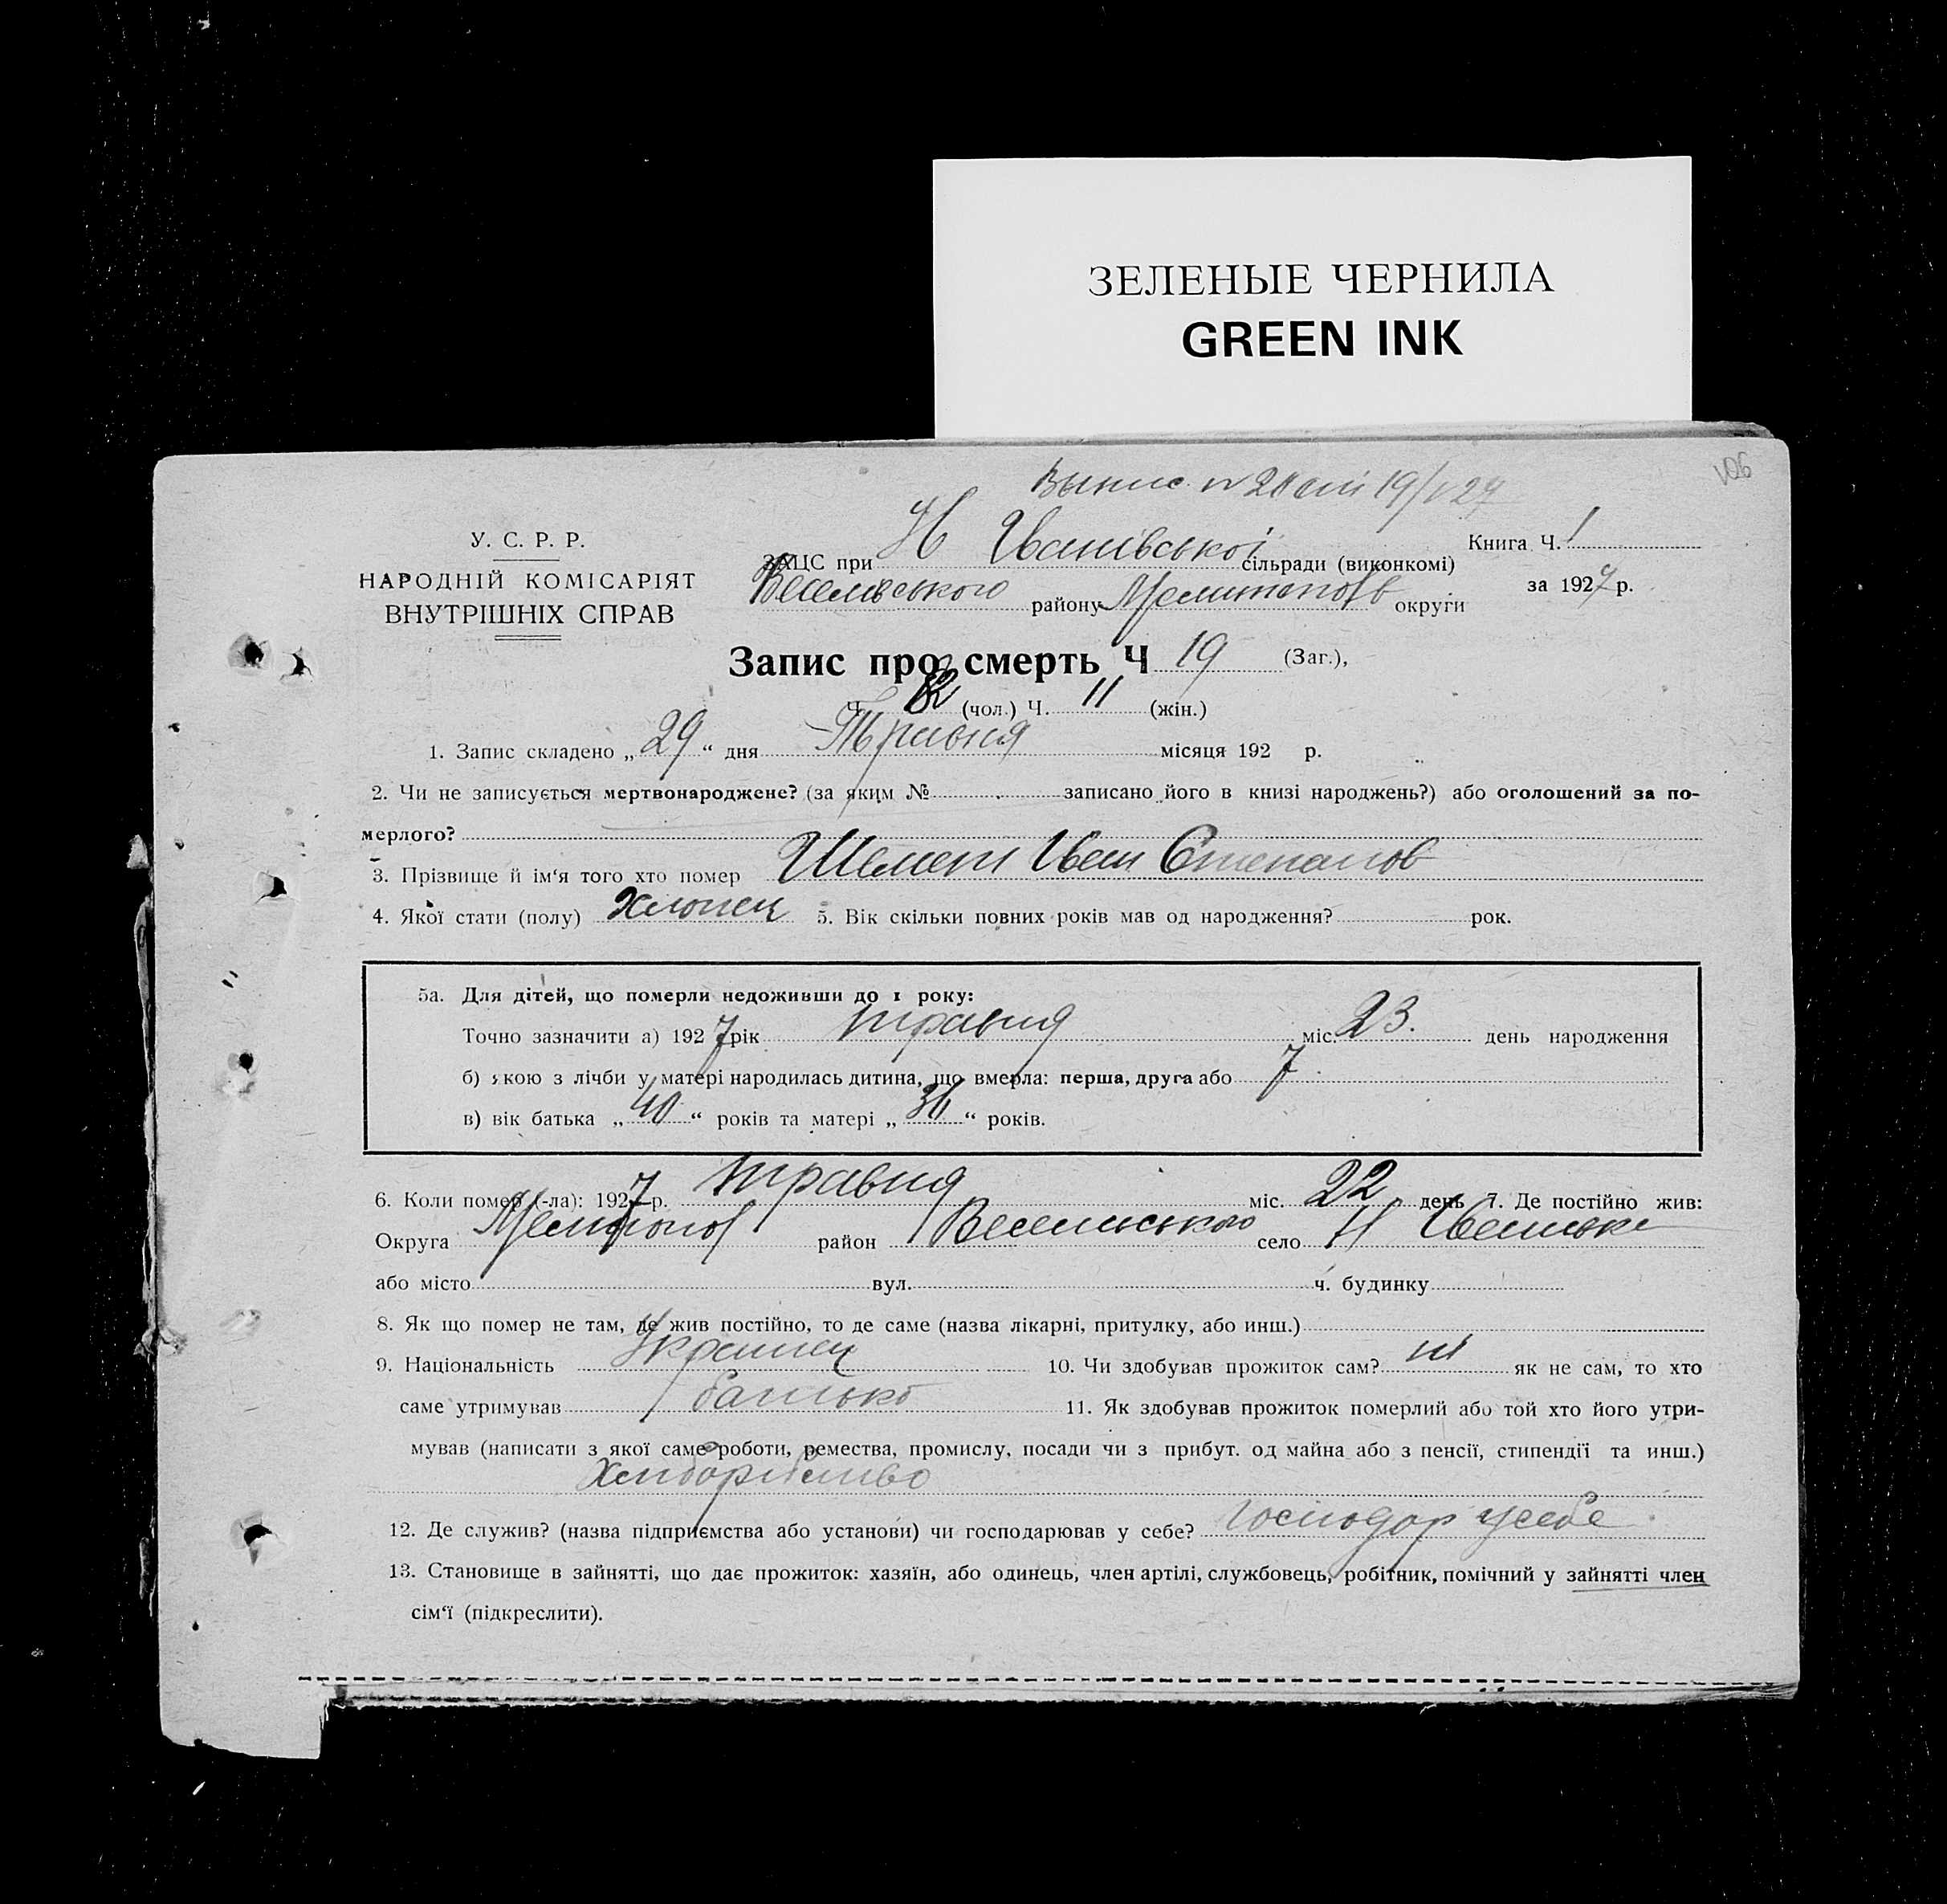 ЗЕЛЕНЫЕ ЧЕРНИЛА
GREEN INK
106
Выпис №
У. С. Р. Р.
НАРОДНІЙ КОМІСАРІЯТ
ВНУТРІШНІХ СПРАВ
ЗАЦС при Н Іванівської сільради (виконкомі)
Книга Ч. 1
Веселівського району Мелитопов округи
за 1927 р.
Запис про смерть Ч 19 (Заг.),
Ч. (чол.) Ч. 11 (жін.)
1. Запис складено „ 29 “ дня Травня місяця 192 р.
2. Чи не записується мертвонароджене? (за яким № записано його в книзі народжень?) або оголошений за по-
мерлого?
3. Прізвище й ім‘я того хто помер Шемет Іван Степанов
4. Якої стати (полу) Хлопец 5. Вік скільки повних років мав од народження? рок.
5а. Для дітей, що померли недоживши до 1 року:
Точно зазначити а) 1927 рік травня міс. 23. день народження
б) якою з лічби у матері народилась дитина, що вмерла: перша, друга або 7
в) вік батька „ 40 “ років та матері „ 36 “ років.
6. Коли помер (-ла): 1927 р. травня міс. 22 день 7. Де постійно жив:
Округа Мелітопол район Веселівського село Н Іванівка
або місто вул. ч. будинку
8. Як що помер не там, де жив постійно, то де саме (назва лікарні, притулку, або инш.)
9. Національність Украинец 10. Чи здобував прожиток сам? ні як не сам, то хто
саме утримував батько 11. Як здобував прожиток померлий або той хто його утри-
мував (написати з якої саме роботи, ремества, промислу, посади чи з прибут. од майна або з пенсії, стипендії та инш.)
Хліборобство
12. Де служив? (назва підприємства або установи) чи господарював у себе? господар у себе
13. Становище в зайнятті, що дає прожиток: хазяїн, або одинець, член артілі, службовець, робітник, помічний у зайнятті член
сім‘ї (підкреслити).